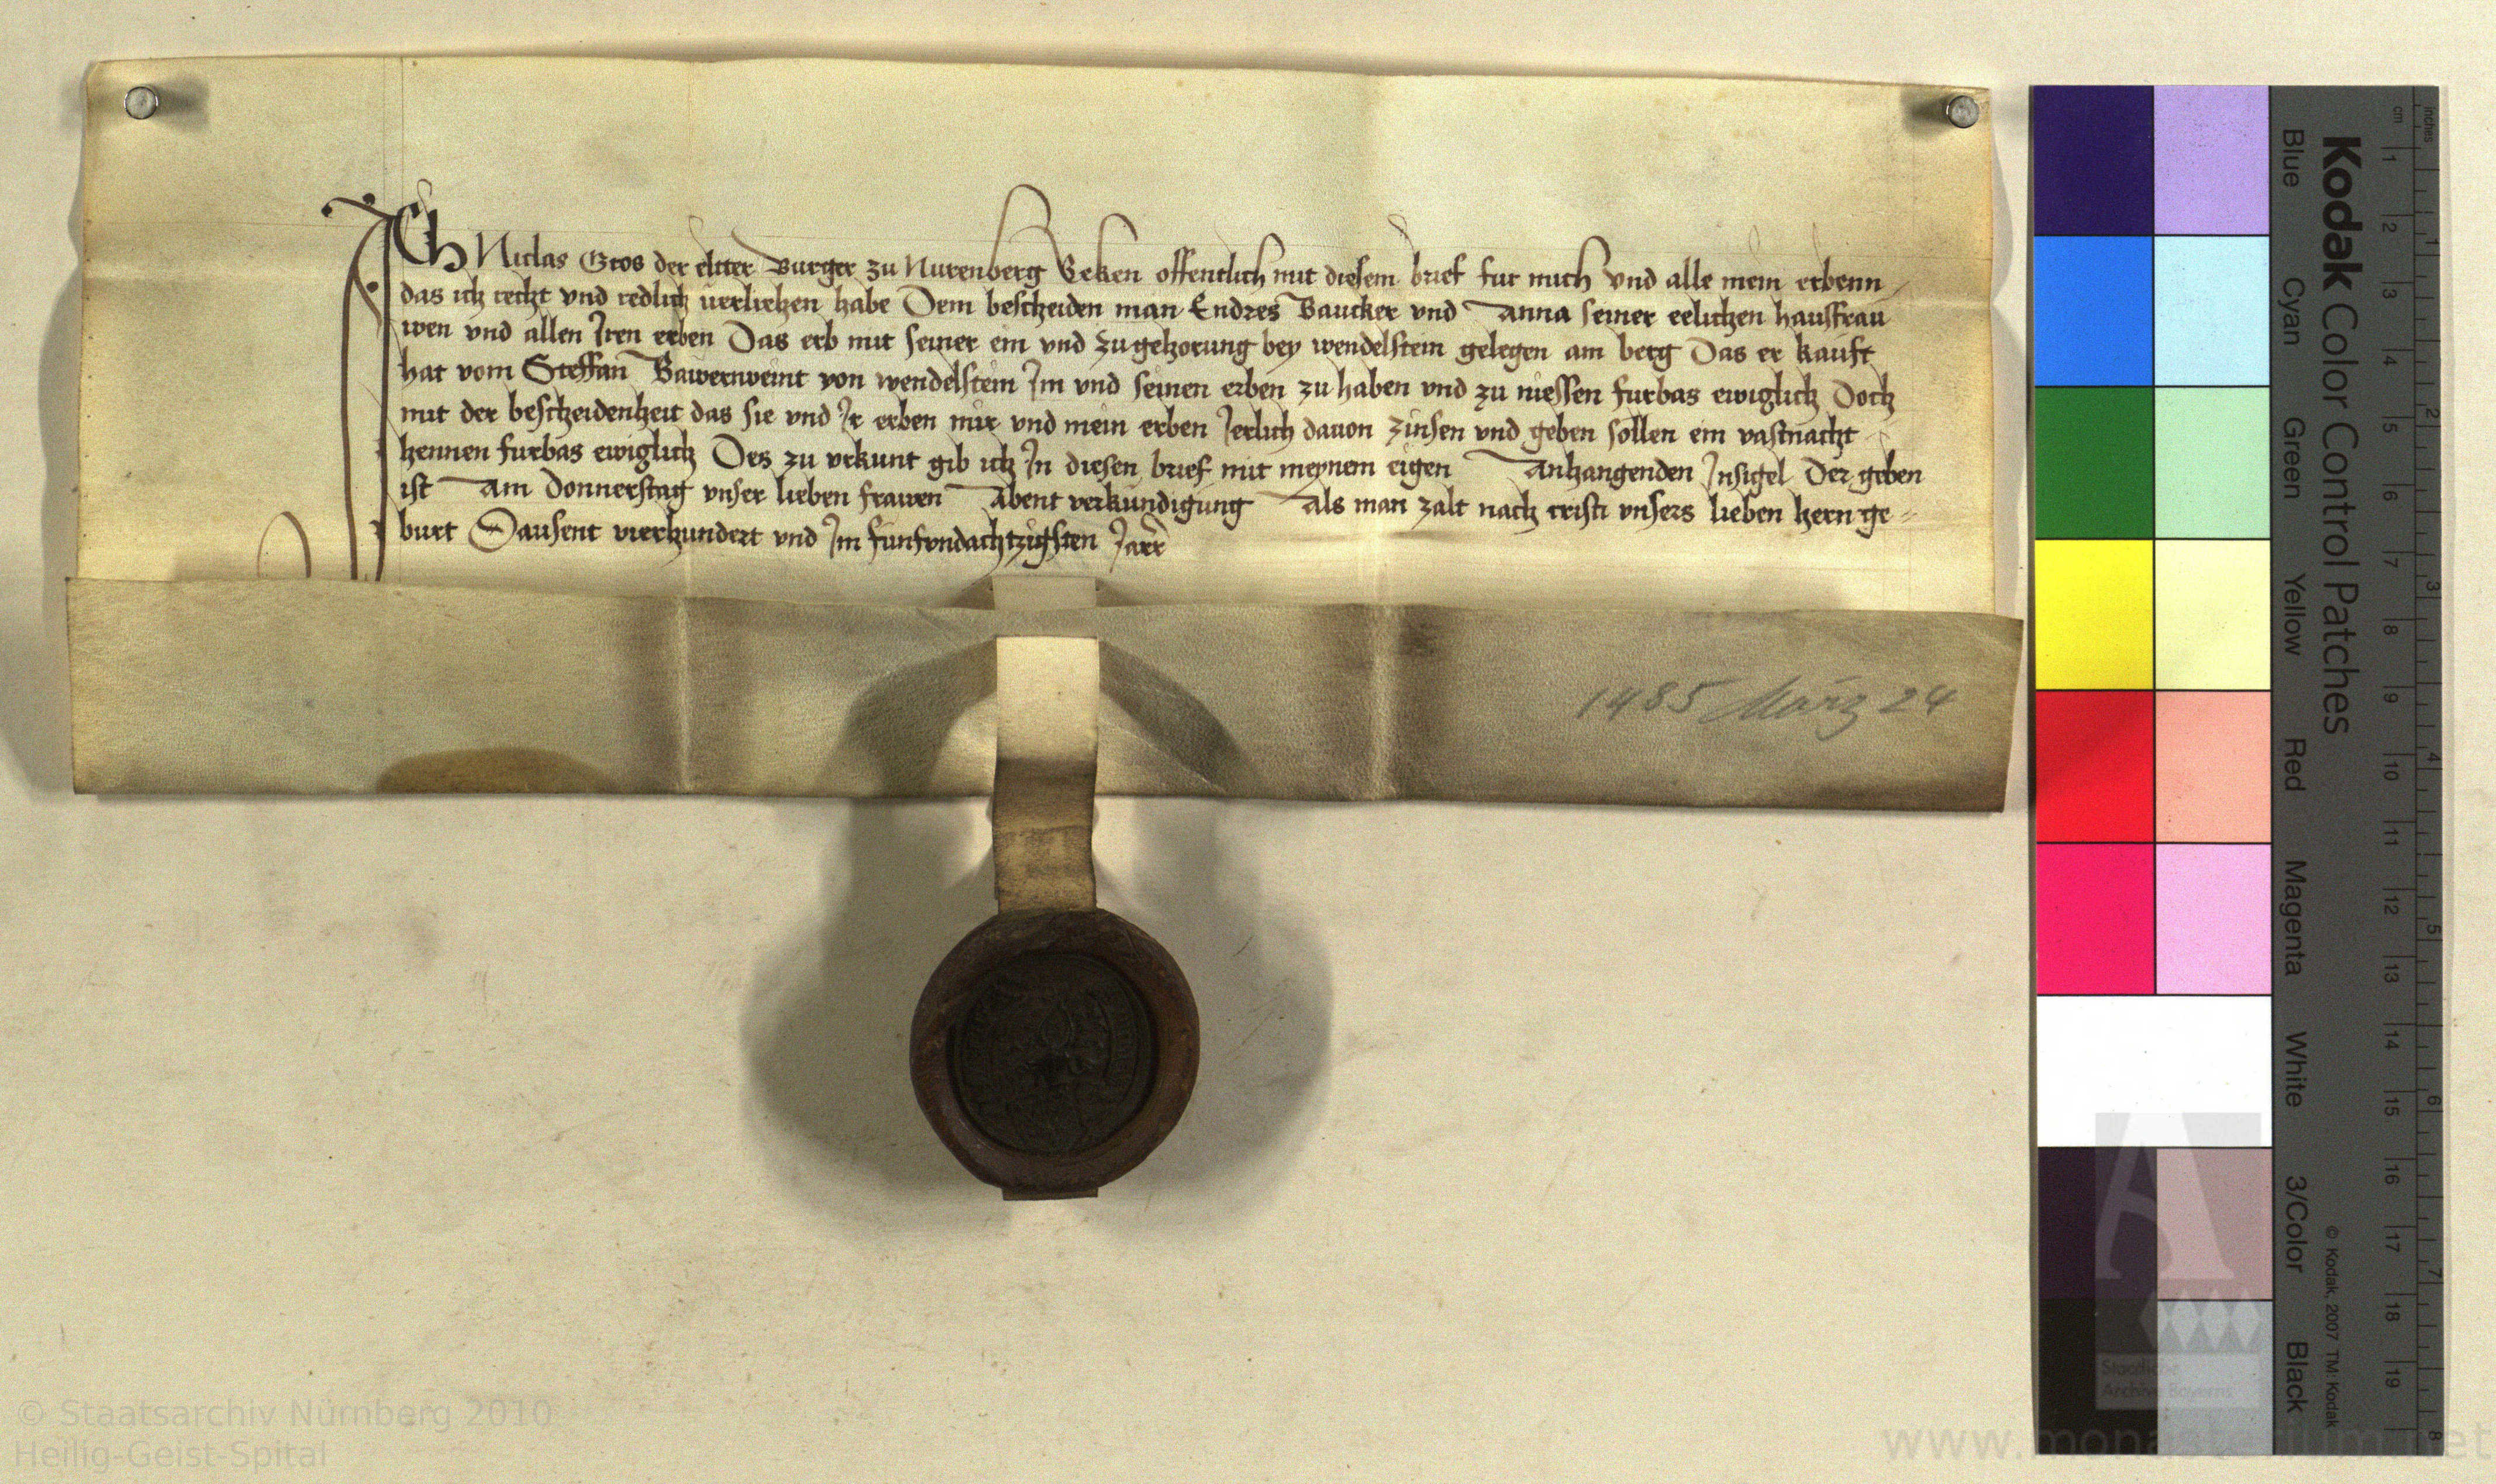 Ich Niclas Gros der elter Burger zu Nurenberg Beken offentlich mit diesem brief fur mich vnd alle mein erbenn
das ich recht vnd redlich verlihen habe Dem bescheiden man Endres Baucker vnd Anna seiner eelichen hausfrau
wen vnd allen Iren erben Das erb mit seiner ein vnd zugehorung bey wendelstein gelegen am berg Das er kauft
hat vom Steffan Bawernveint von wendelstein Im vnd seinen erben zu haben vnd zu niessen furbas ewiglich Doch
mit der bescheidenheit das sie vnd Ir erben mir vnd mein erben Ierlich dauon zinsen vnd geben sollen ein vastnacht
hennen furbas ewiglich Des zu vrkunt gib ich In diesen brief mit meynem eigen Anhangenden Insigel Der geben
ist Am Donnerstag vnser lieben frawen Abent verkundigung Als man zalt nach cristi vnsers lieben hern ge-
burt Dausent vierhundert vnd Im funfvndachtzigsten Jare
1485 März 24
Kodak Color Control Patches
Blue Cyan Green Yellow Red Magenta White 3/Color Black
© Kodak, 2007 TM: Kodak
cm 1 2 3 4 5 6 7 8 9 10 11 12 13 14 15 16 17 18 19
inches 1 2 3 4 5 6 7 8
Staatliche
Archive Bayerns
© Staatsarchiv Nürnberg 2010
Heilig-Geist-Spital
www.monasterium.net